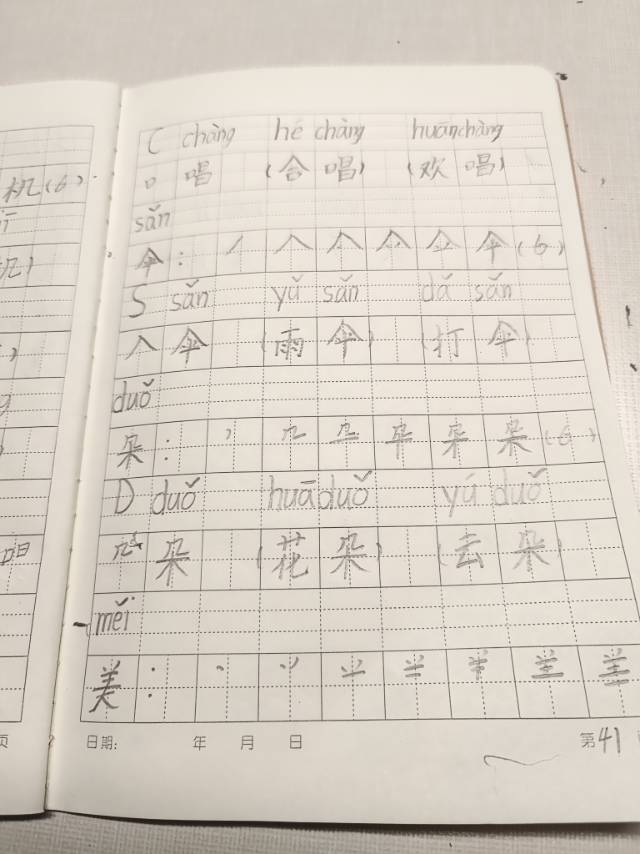 机(6)
C chàng hé chàng huānchàng
口 唱 (合 唱) (欢 唱)
sǎn
伞: 丿 人 (6)
S sǎn yǔ sǎn dǎ sǎn
人 伞 (雨 伞) (打 伞)
duǒ
朵: (6)
D duǒ huāduǒ yú duǒ
朵 (花 朵) (云 朵)
měi
美:
日期: 年 月 日
第41